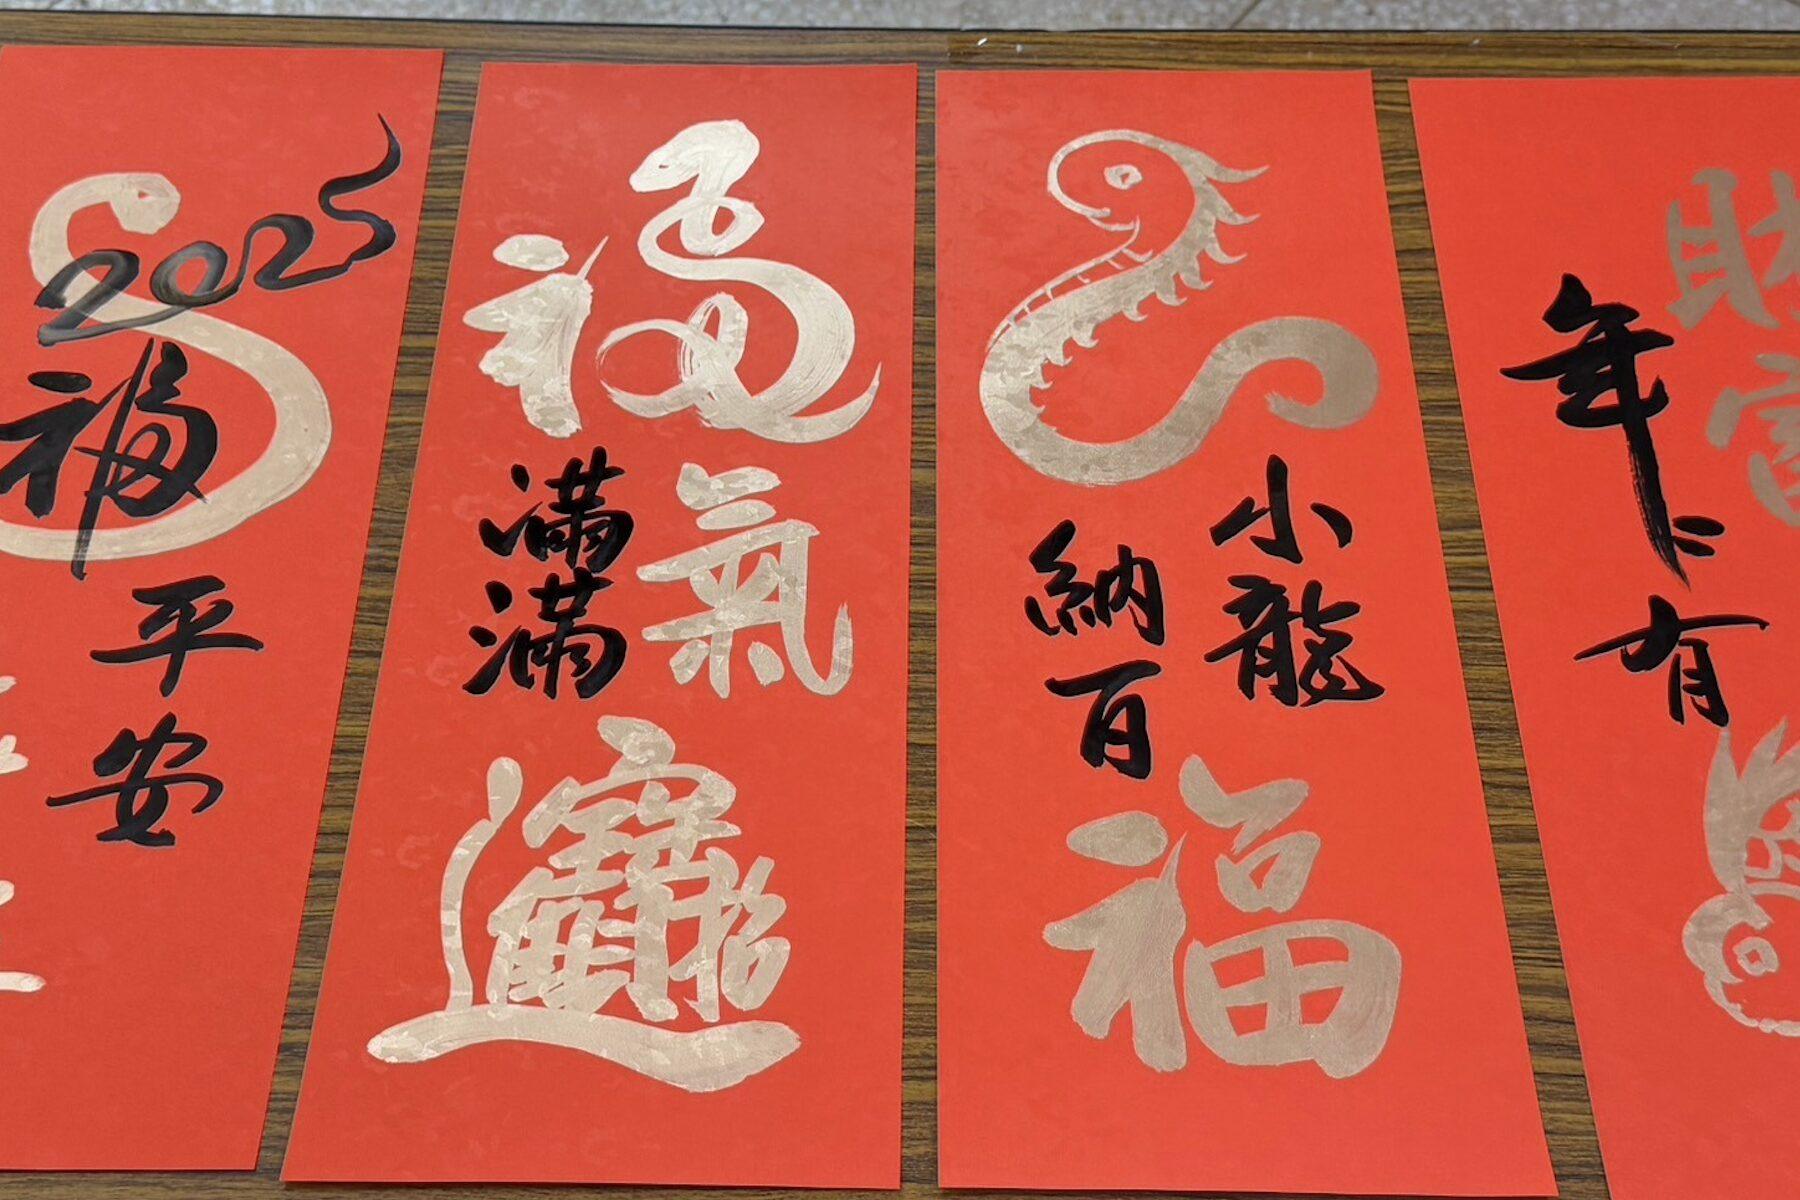 2025
福
平
安
福氣
滿滿
招財進寶
小龍
納百
福
年年有
財富